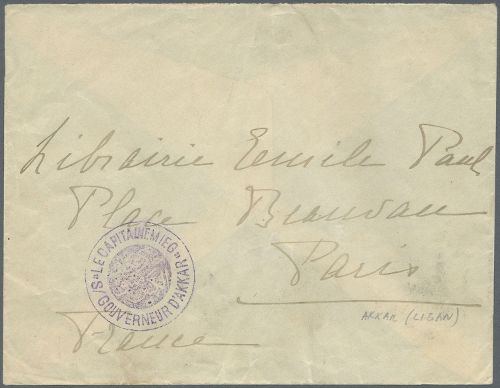 Librairie Emile Paul
Place Beauvau
Paris
AKKAR (LIBAN)
France
LE CAPITAINE MIEG
GOUVERNEUR D'AKKAR